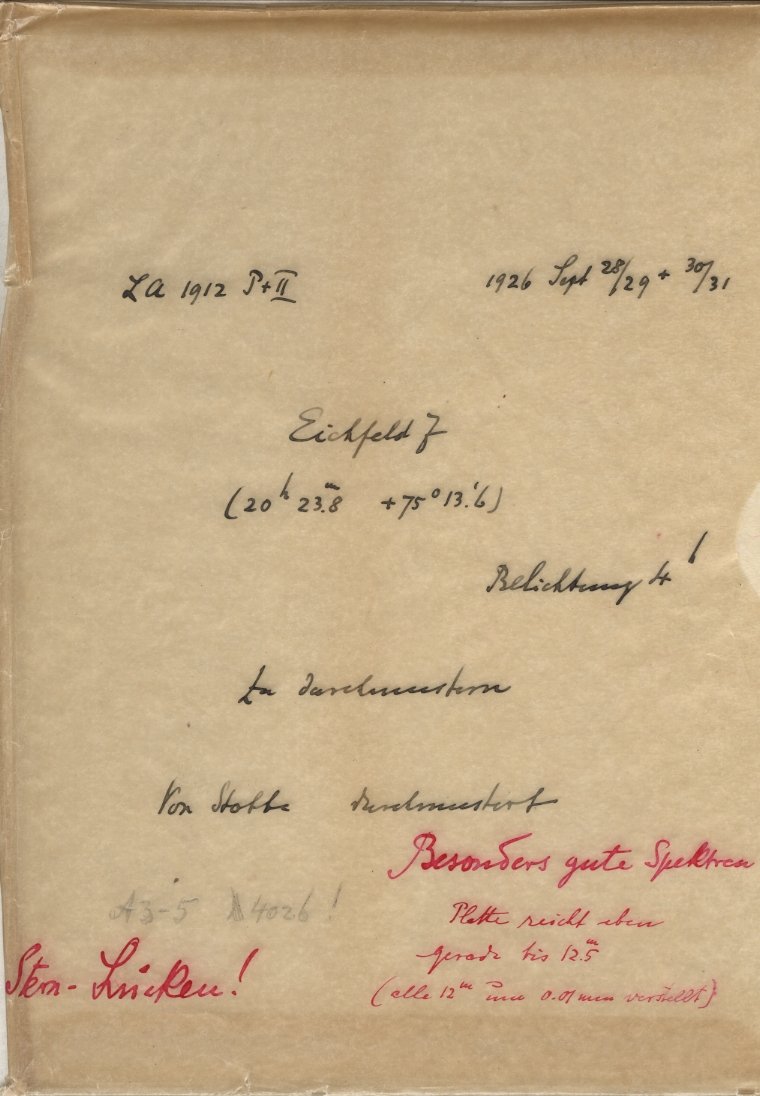 LA 1912 I+II
1926 Sept 28/29 + 30/31
Eichfeld 7
(20h 23m.8 +75° 13.'6)
Belichtung 4h
Zu durchmustern
Von Stobbe durchmustert
Besonders gute Spektren
A3-5 λ4026!
Platte reicht eben
gerade bis 12.m5
Stern-Lücken!
(alle 12m um 0.01mm verstellt)